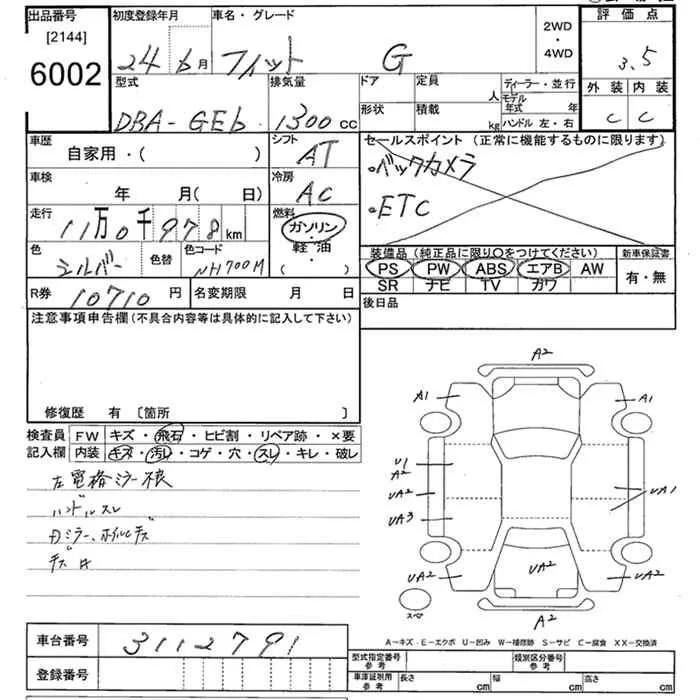 出品番号
[2144]
6002
初度登録年月
24 6月
車名・グレード
フィット G
2WD
・
4WD
評価点
3.5
外装 内装
C C
型式
DBA-GE6
排気量
1300cc
ドア
定員
人
形状
積載
kg
ディーラー・並行
モデル年式 年
ハンドル 左・右
車歴
自家用・( )
シフト
AT
セールスポイント (正常に機能するものに限ります)
・バックカメラ
・ETC
車検
年 月(日)
冷房
AC
走行
11万0千978km
燃料
ガソリン
軽・油
( ・ )
色
シルバー
色替
色コード
NH700M
装備品 (純正品に限り〇をつけてください)
PS PW ABS エアB AW
SR ナビ TV カワ
新車保証書
有・無
R券
10710円
名変期限 月 日
後日品
注意事項申告欄(不具合内容等は具体的に記入して下さい)
修復歴 有 〔箇所 〕
検査員
記入欄
FW キズ・飛石・ヒビ割・リペア跡・×要
内装 キズ・汚レ・コゲ・穴・スレ・キレ・破レ
左電格ミラー不良
ハンドルスレ
ホイルキズ
A2
A1 A1
U1
A2
UA2
UA3
UA1
UA2
UA2
UA2
スペア
A2
A－キズ・E－エクボ U－凹み W－補修跡 S－サビ C－腐食 XX－交換済
車台番号
3112791
登録番号
型式指定番号
参考
類別区分番号
参考
車庫証明用
参考
長さ cm
幅 cm
高さ cm